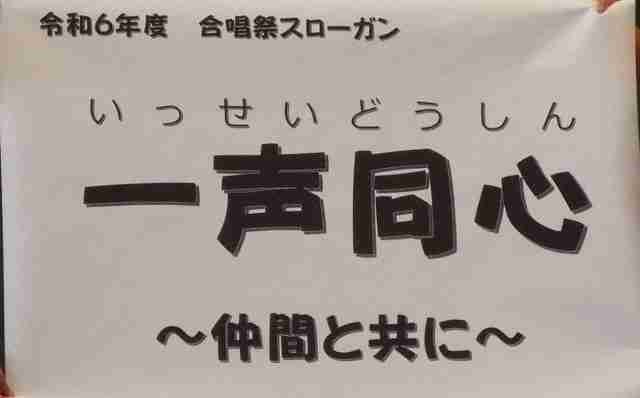 令和6年度　合唱祭スローガン
いっせいどうしん
一声同心
～仲間と共に～